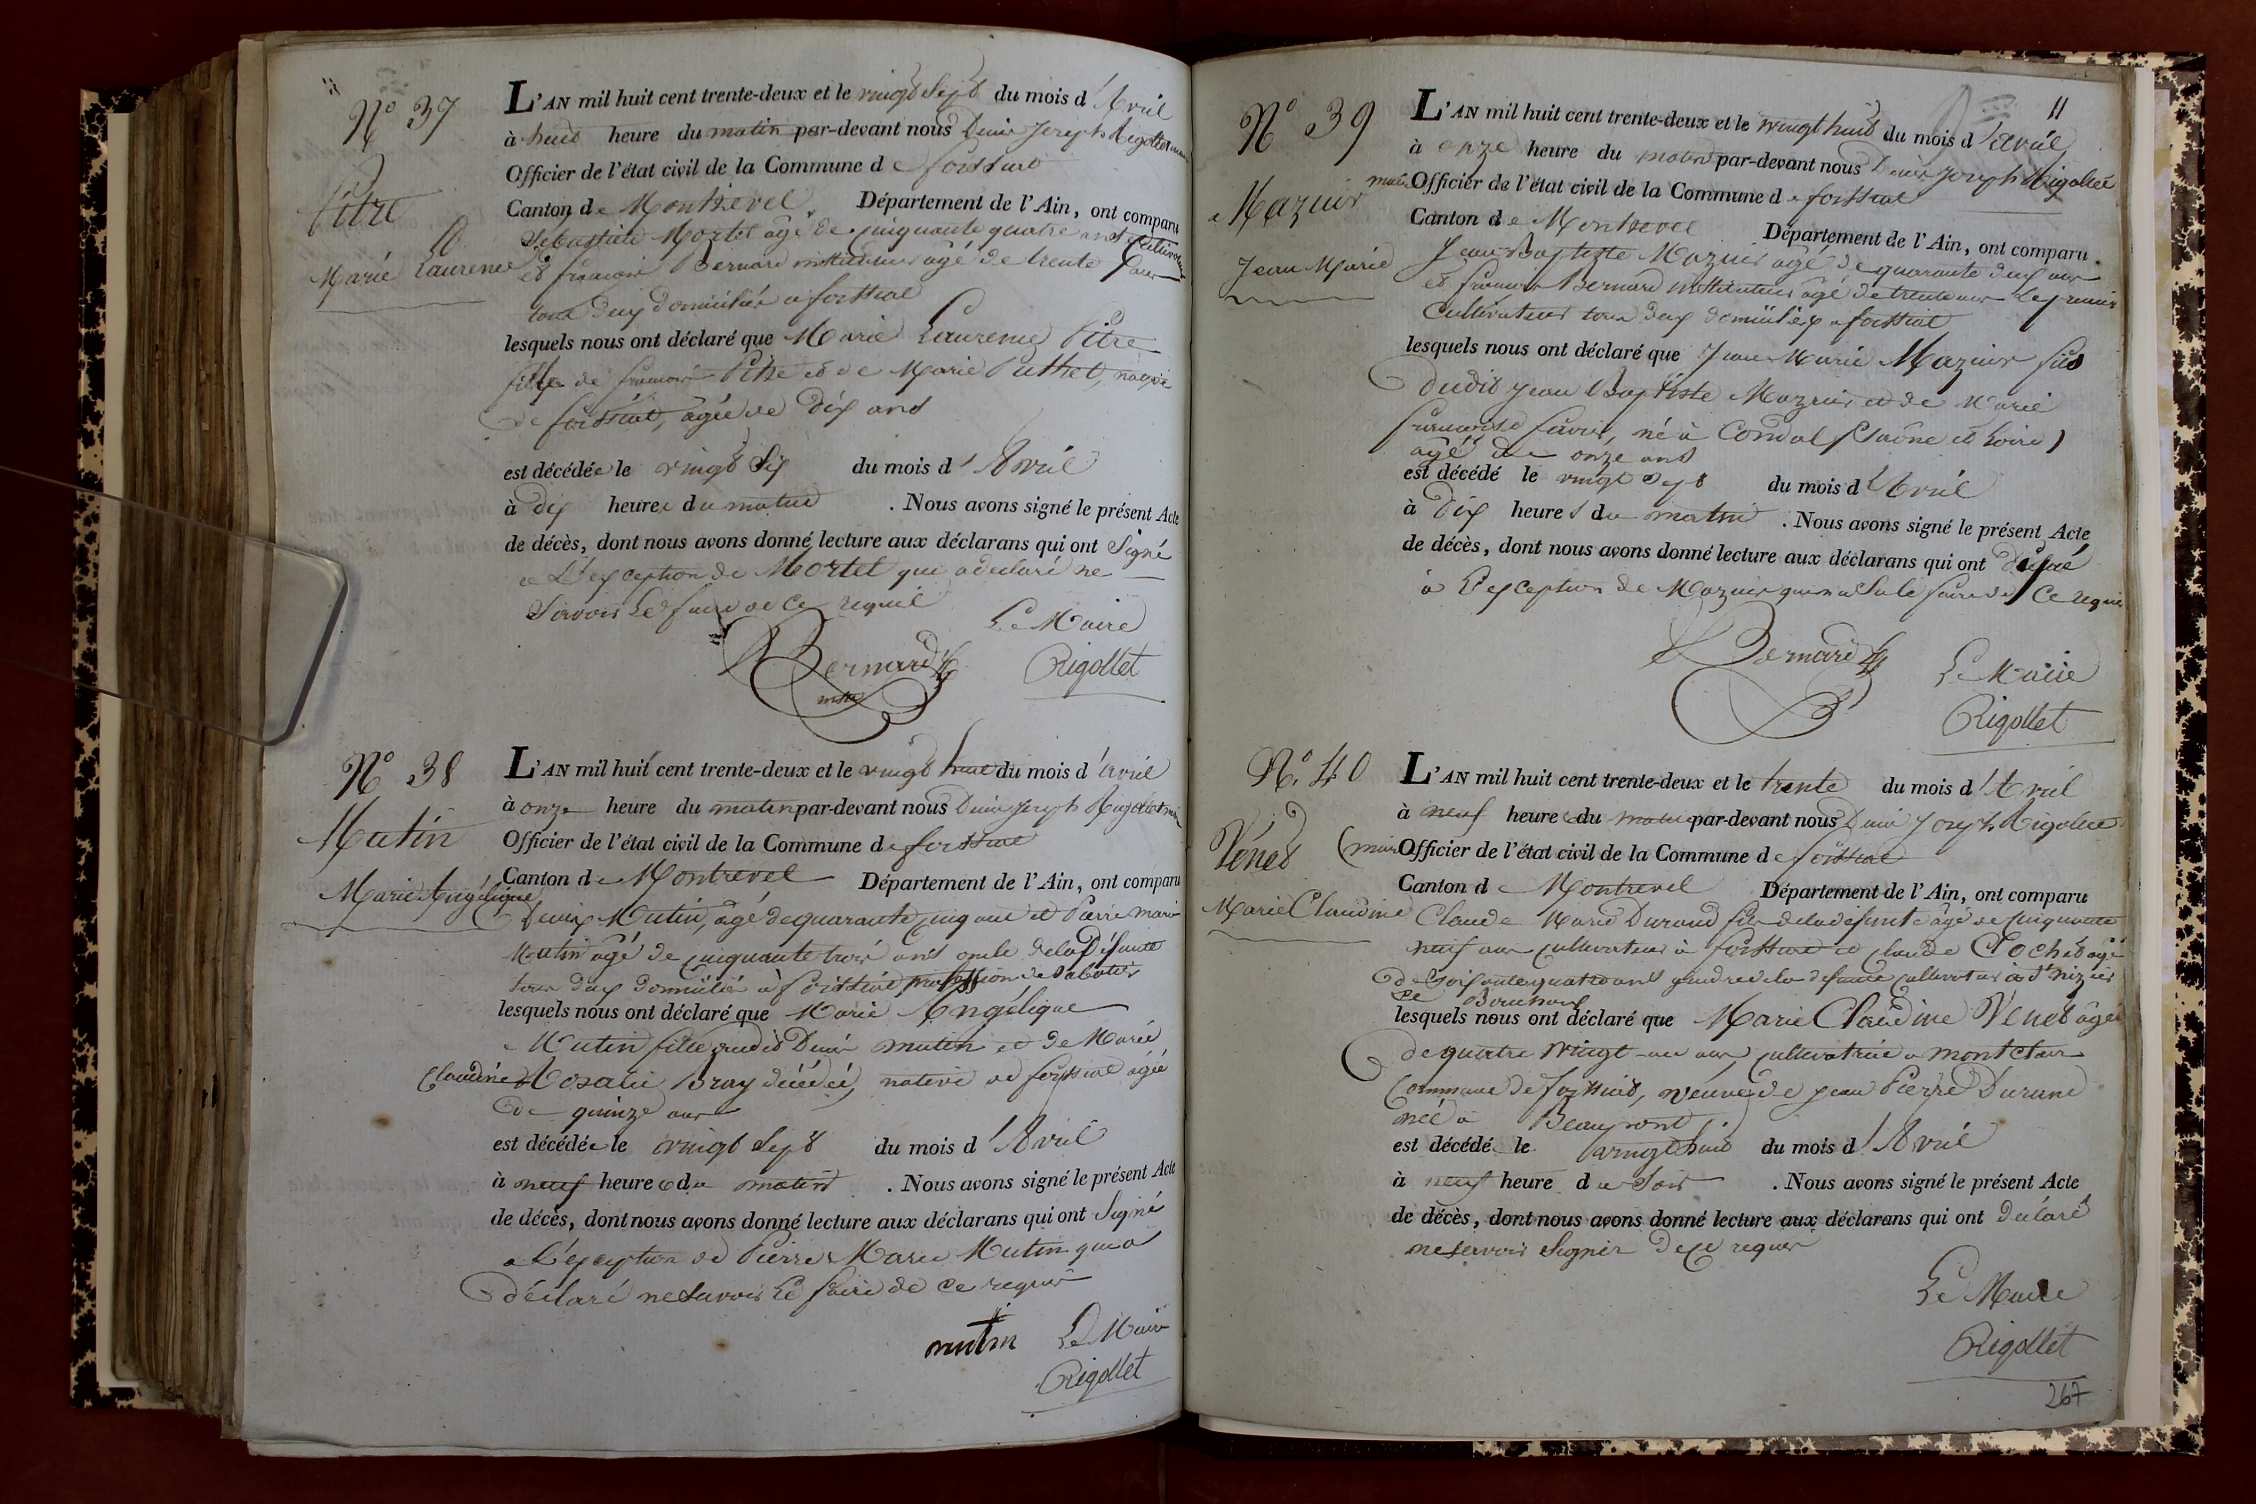 N° 37
Pitre
Marie Laurence
L'AN mil huit cent trente-deux et le vingt Sept du mois d'Avril
à huit heure du matin par-devant nous Denis Joseph Rigollet maire
Officier de l'état civil de la Commune de foissiat
Canton de Montrevel Département de l'Ain, ont comparu
Sébastien Mortel âgé de cinquante quatre ans cultivateur
et françois Bernard instituteur âgé de trente ans
tous deux domiciliés a foissiat
lesquels nous ont déclaré que Marie Laurence Pitre
fille de françois Pitre et de Marie Puthet, native
de foissiat, âgée de dix ans
est décédée le vingt Six du mois d'Avril
à dix heures du matin . Nous avons signé le présent Acte
de décès, dont nous avons donné lecture aux déclarans qui ont Signé
a L'exception de Mortel qui a declaré ne
Savoir Le faire de ce requis
Le Maire
Bernard Rigollet
inst
N° 38
Mutin
Marie Angélique
L'AN mil huit cent trente-deux et le vingt huit du mois d'avril
à onze heure du matin par-devant nous Denis Joseph Rigollet maire
Officier de l'état civil de la Commune de foissiat
Canton de Montrevel Département de l'Ain, ont comparu
Denis Mutin, âgé de quarante cinq ans et Pierre marie
Mutin âgé de cinquante trois ans oncle de la Défunte
tous deux domiciliés à foissiat profession de sabotier
lesquels nous ont déclaré que Marie Angélique
Mutin fille dudit Denis mutin et de Marie
Claudine Rosalie Bray décédée, native de foissiat agée
de quinze ans
est décédée le vingt Sept du mois d'Avril
à neuf heures du matin . Nous avons signé le présent Acte
de décès, dont nous avons donné lecture aux déclarans qui ont Signé
a L'exception de Pierre Marie Mutin qui a
déclaré ne Savoir Le faire de ce requis
mutin Le Maire
Rigollet
11
N° 39
Mazuir
Jean Marie
L'AN mil huit cent trente-deux et le vingt huit du mois d'avril
à onze heure du matin par-devant nous Denis Joseph Rigollet
maire Officier de l'état civil de la Commune de foissiat
Canton de Montrevel Département de l'Ain, ont comparu
Jean Baptiste Mazuir agé de quarante deux ans
et françois Bernard instituteur âgé de trente ans Le premier
Cultivateur tous deux domiciliés a foissiat
lesquels nous ont déclaré que Jean Marie Mazuir fils
dudit Jean Baptiste Mazuir et de Marie
françoise favier, né à Condal (Saône et Loire)
âgé de onze ans
est décédé le vingt Sept du mois d'Avril
à Dix heures du matin . Nous avons signé le présent Acte
de décès, dont nous avons donné lecture aux déclarans qui ont Signé
à L'exception de Mazuir qui n'a Su le faire de Ce requis
Bernard Le Maire
Rigollet
N° 40
Vénet
Marie Claudine
L'AN mil huit cent trente-deux et le trente du mois d'Avril
à neuf heures du matin par-devant nous Denis Joseph Rigollet
(maire Officier de l'état civil de la Commune de foissiat
Canton de Montrevel Département de l'Ain, ont comparu
Claude Marie Durand fils de la defunte âgé de cinquante
neuf ans cultivateur à foissiat et Claude Cochet âgé
de soixante quatre ans gendre de la defunte cultivateur à St Nizier
Le Bouchoux
lesquels nous ont déclaré que Marie Claudine Venet âgée
de quatre vingt un ans cultivatrice a montclair
Commune de foissiat, veuve de jean Pierre Durand
née à Beaupont
est décédé le vingt huit du mois d'Avril
à neuf heure du Soir . Nous avons signé le présent Acte
de décès, dont nous avons donné lecture aux déclarans qui ont déclaré
ne savoir signer de ce requis
Le Maire
Rigollet
267